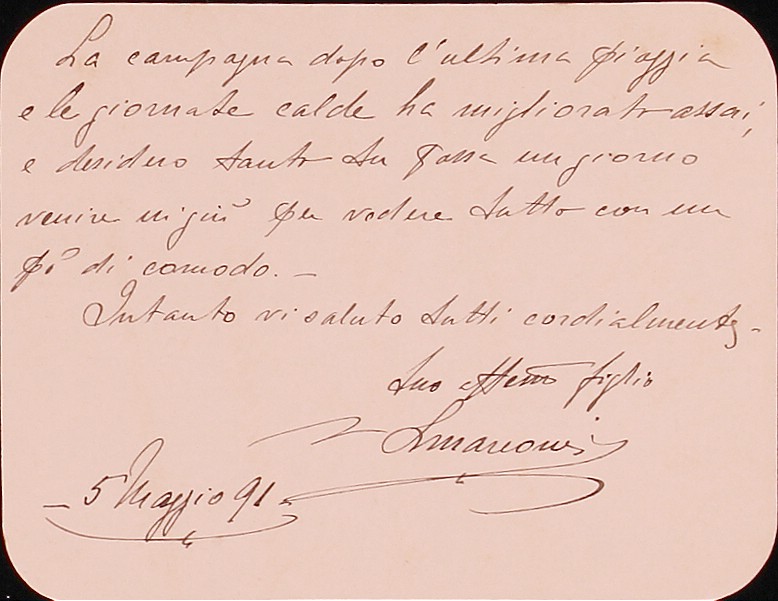 La campagna dopo l'ultima pioggia
e le giornate calde ha migliorato assai,
e desidero tanto tu possa un giorno
venire in giù per vedere tutto con un
pò di comodo. —
Intanto vi saluto tutti cordialmente,
tuo affemo figlio
LMarconi
— 5 Maggio 91 —